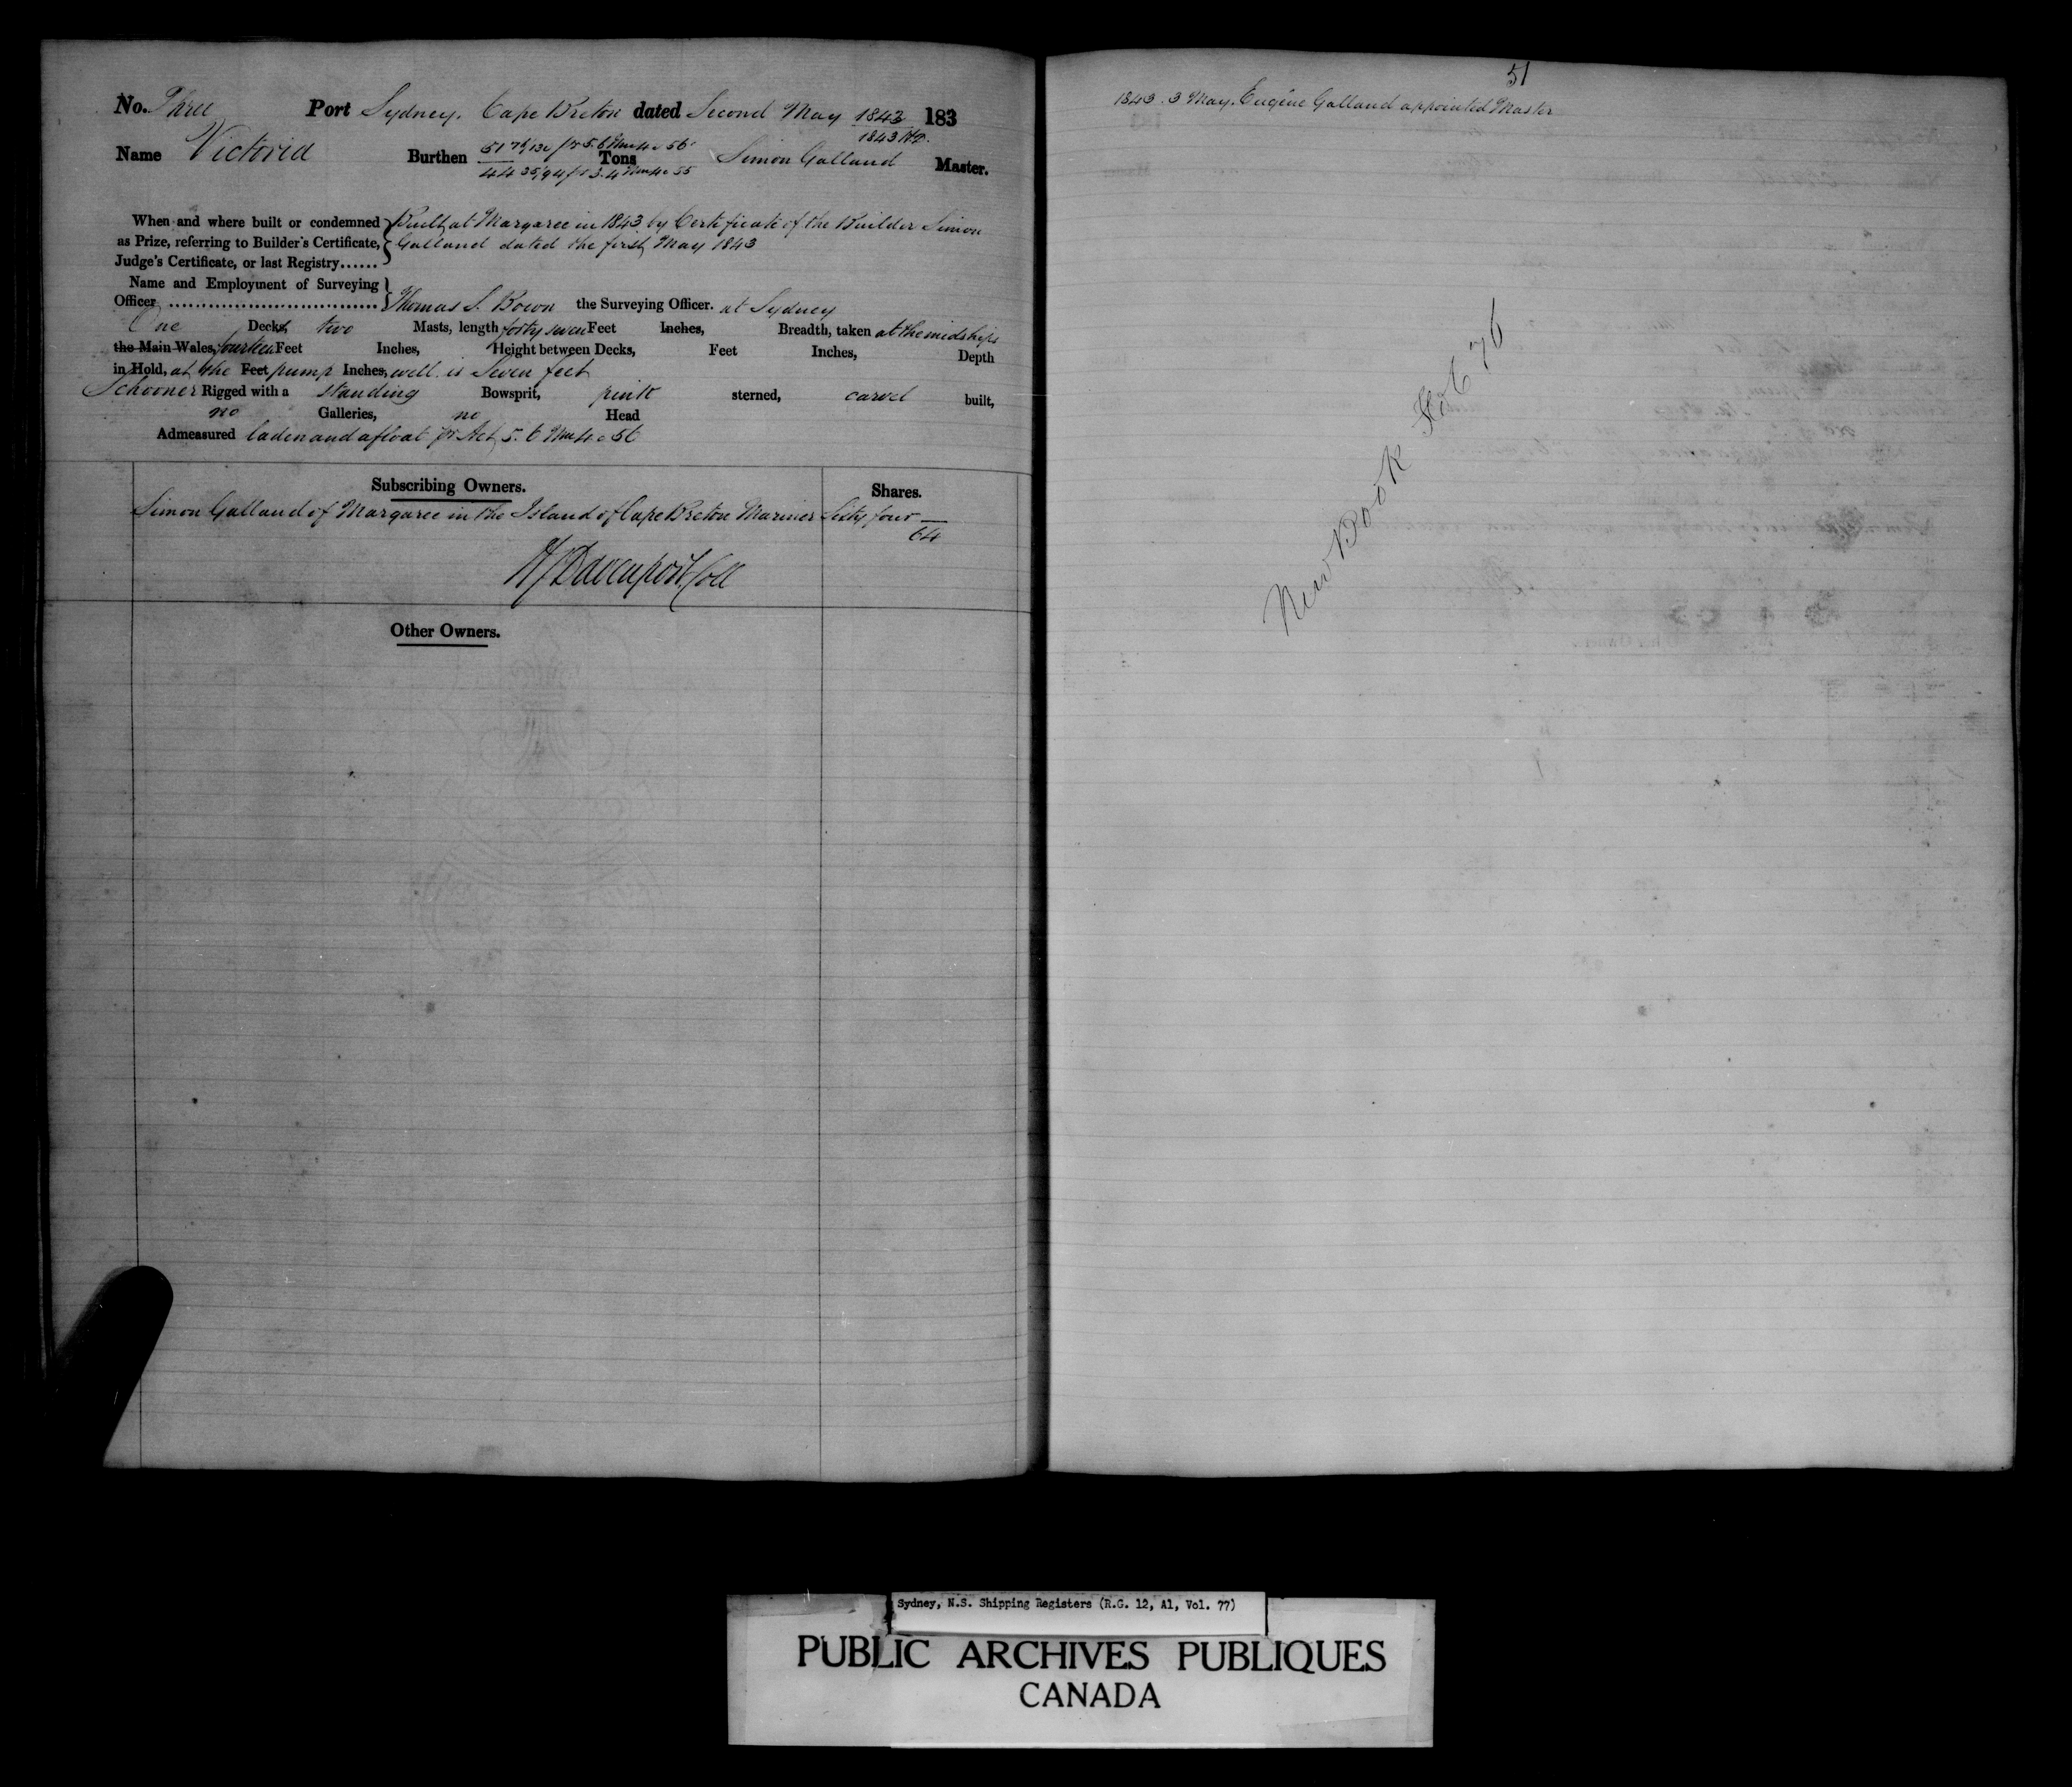 No. Three Port Sydney. Cape Breton dated Second May 1843 183
1843 HD.
Name Victoria Burthen 51 76/130 pr 5.6 Wm 4 c 56 Tons Simon Galland Master.
44 35/94 pr 3.4 Wm 4 c 55
When and where built or condemned Built at Margaree in 1843 by Certificate of the Builder Simon
as Prize, referring to Builder's Certificate, Galland dated the first May 1843
Judge's Certificate, or last Registry......
Name and Employment of Surveying
Officer ................................ Thomas S. Bown the Surveying Officer. at Sydney
One Decks, two Masts, length forty seven Feet Inches, Breadth, taken at the midships
the Main Wales, fourteen Feet Inches, Height between Decks, Feet Inches, Depth
in Hold, at the Feet pump Inches, well is Seven feet
Schooner Rigged with a standing Bowsprit, pink sterned, carvel built,
no Galleries, no Head
Admeasured laden and afloat pr Act 5. 6 Wm 4 c 56
Subscribing Owners. Shares.
Simon Galland of Margaree in the Island of Cape Breton Mariner Sixty four
64
H Davenport Coll
Other Owners.
51
1843. 3 May. Eugène Galland appointed Master
New Book Fol 76
Sydney, N.S. Shipping Registers (R.G. 12, A1, Vol. 77)
PUBLIC ARCHIVES PUBLIQUES
CANADA